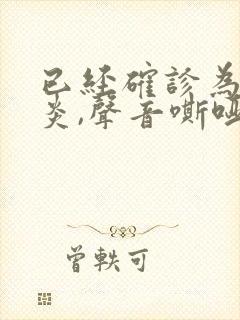 已經確診為
炎,聲音嘶啞
曾軼可